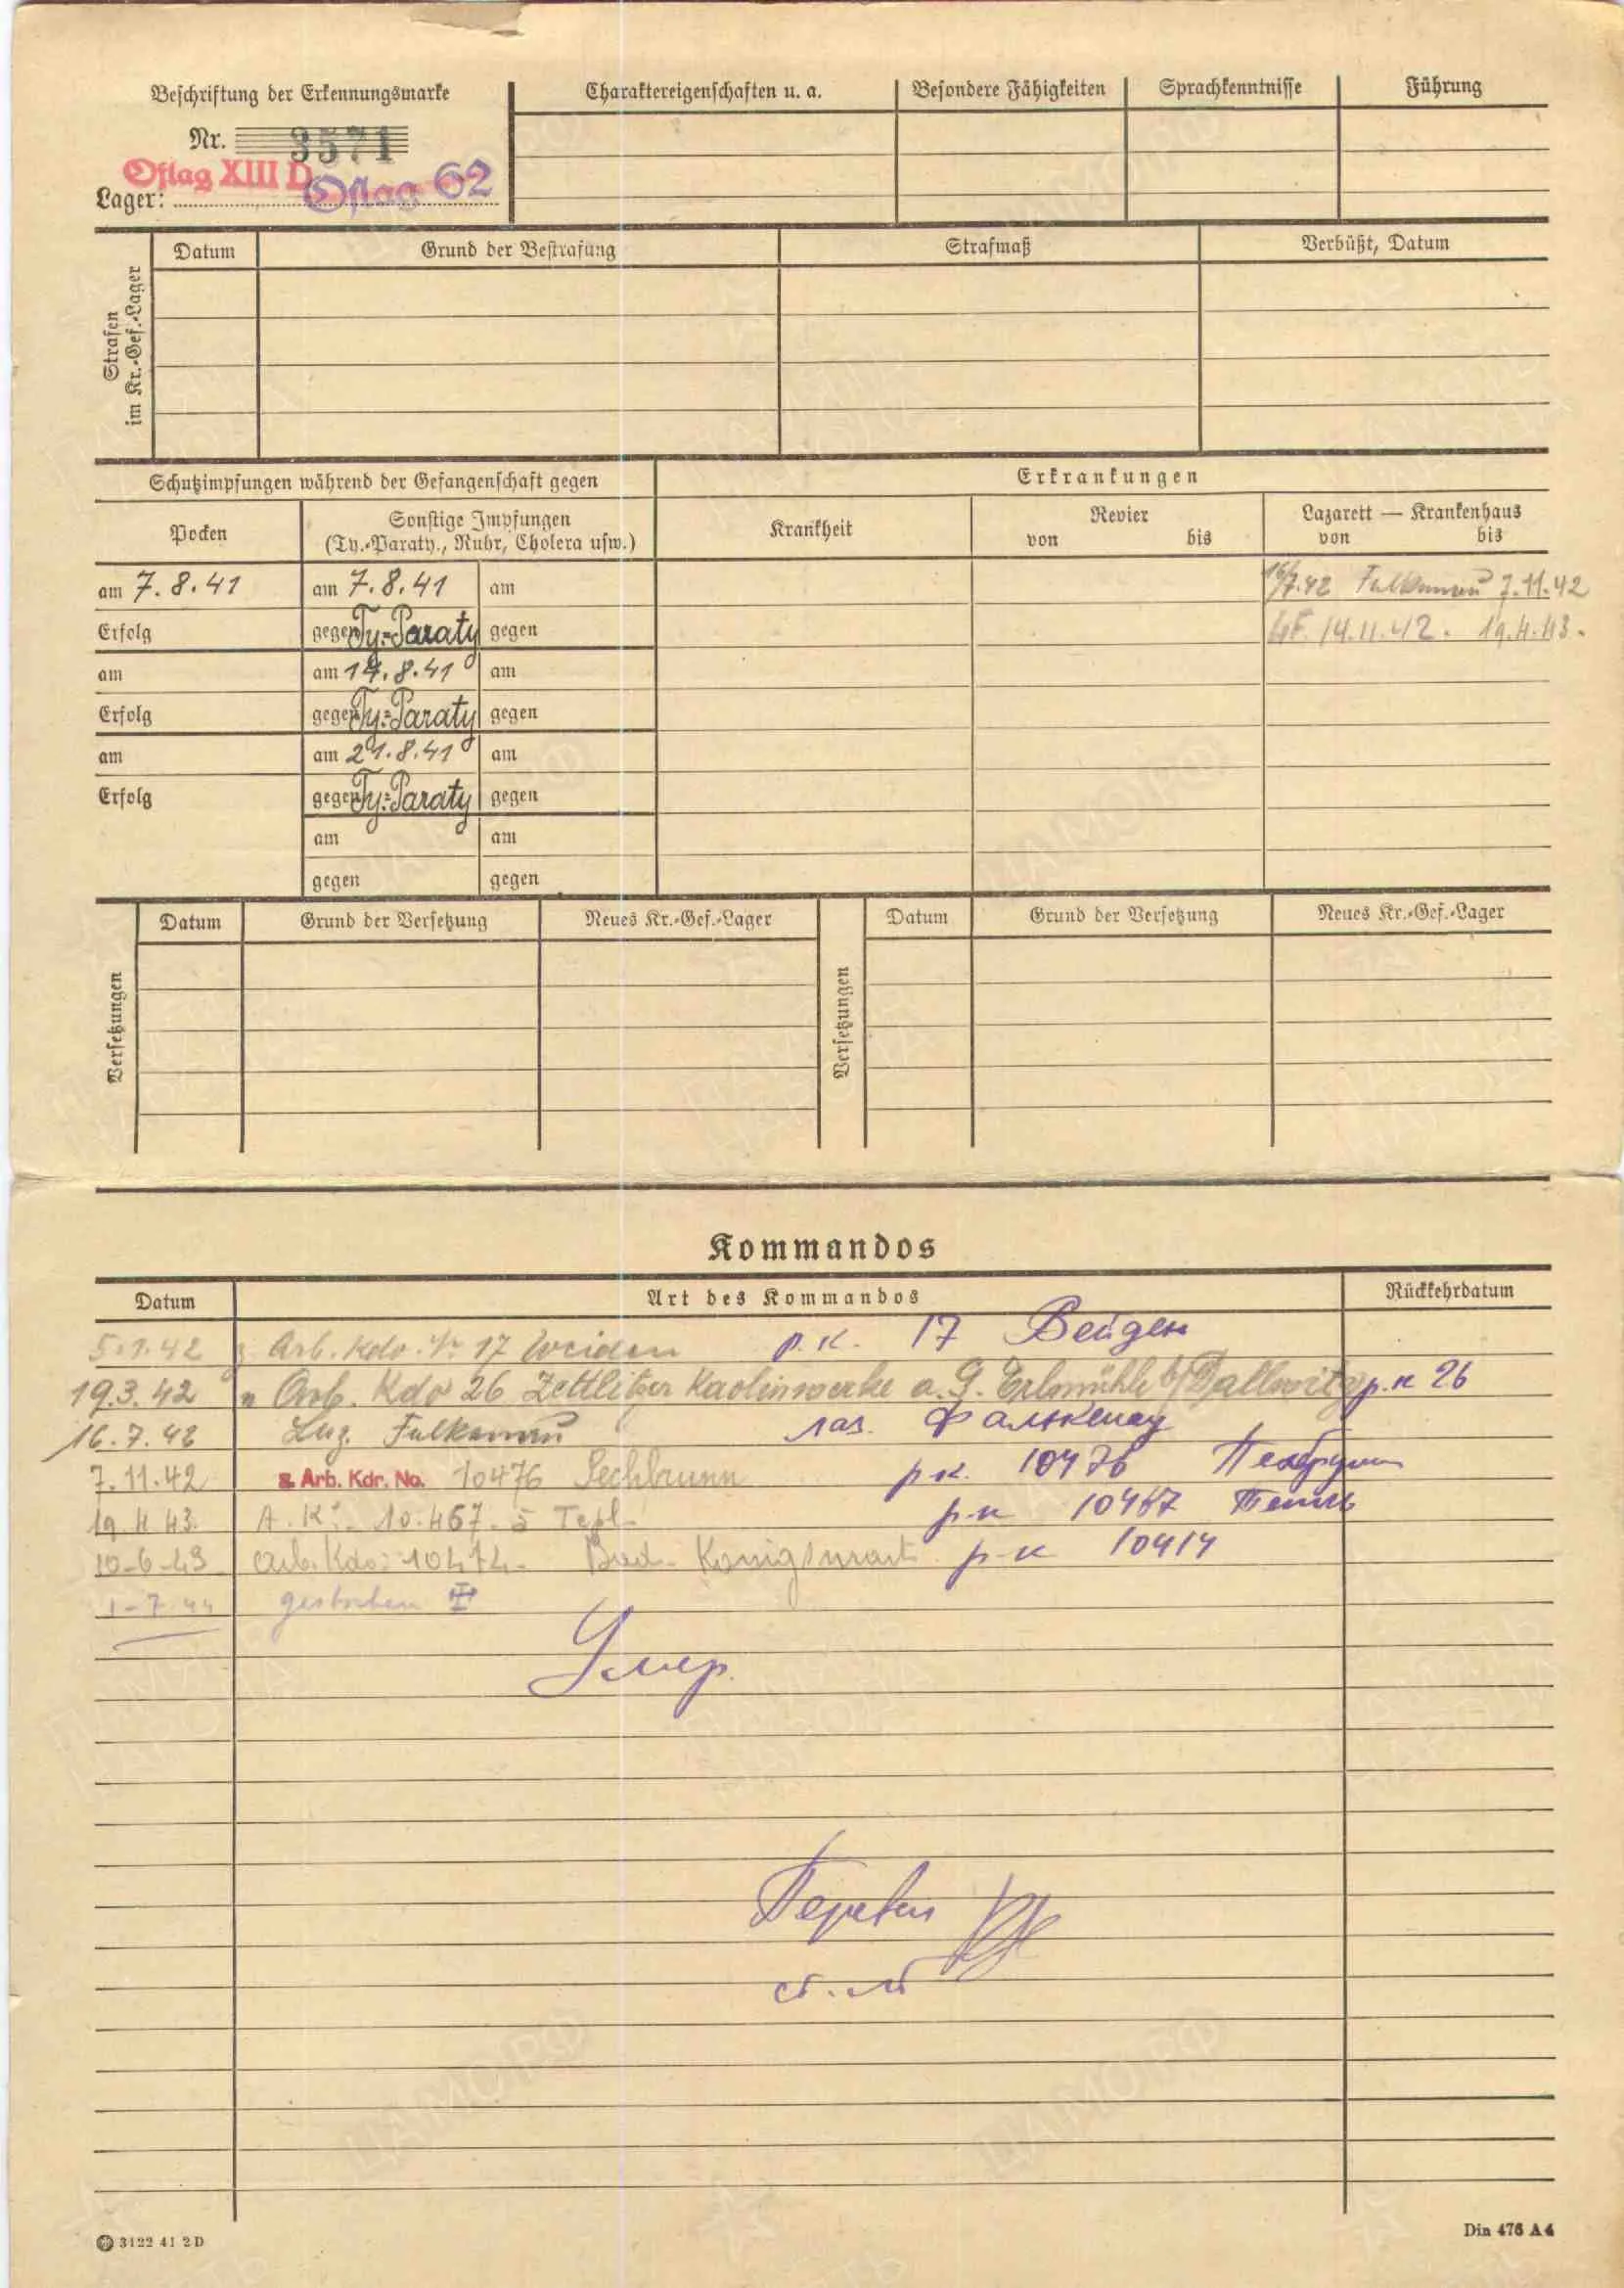 Beschriftung der Erkennungsmarke
Nr. 3571
Oflag XIII D Oflag 62
Lager:
Charaktereigenschaften u. a.
Besondere Fähigkeiten
Sprachkenntnisse
Führung
Strafen
im Kr.-Gef.-Lager
Datum
Grund der Bestrafung
Strafmaß
Verbüßt, Datum
Schutzimpfungen während der Gefangenschaft gegen
Erkrankungen
Pocken
Sonstige Impfungen
(Ty.-Paraty., Ruhr, Cholera usw.)
Krankheit
Revier
von bis
Lazarett — Krankenhaus
von bis
am 7.8.41 am 7.8.41 am
7.42 Falkenau 7.11.42
Erfolg gegen Ty.-Paraty gegen
14.11.42. 19.4.43.
am am 14.8.41 am
Erfolg gegen Ty.-Paraty gegen
am am 21.8.41 am
Erfolg gegen Ty.-Paraty gegen
am am
gegen gegen
Versetzungen
Datum
Grund der Versetzung
Neues Kr.-Gef.-Lager
Versetzungen
Datum
Grund der Versetzung
Neues Kr.-Gef.-Lager
Kommandos
Datum
Art des Kommandos
Rückkehrdatum
5.1.42 Arb. Kdo. Nr 17 Weiden р.к. 17 Вейден
19.3.42 Arb. Kdo 26 Zettlitzer Kaolinwerke a. G. Erlmühle b/Dallwitz р.к 26
16.7.42 Laz. Falkenau лаз. Фалькенау
7.11.42 z Arb. Kdr. No. 10476 р.к. 10476
19 4 43. A. K° 10.467 Tepl р-к 10467 Тепль
10-6-43 Arb. Kdo: 10414 Bad Königswart р-к 10414
1-7-44 gestorben
Умер.
Перевел
3122 41 2D
Din 476 A4